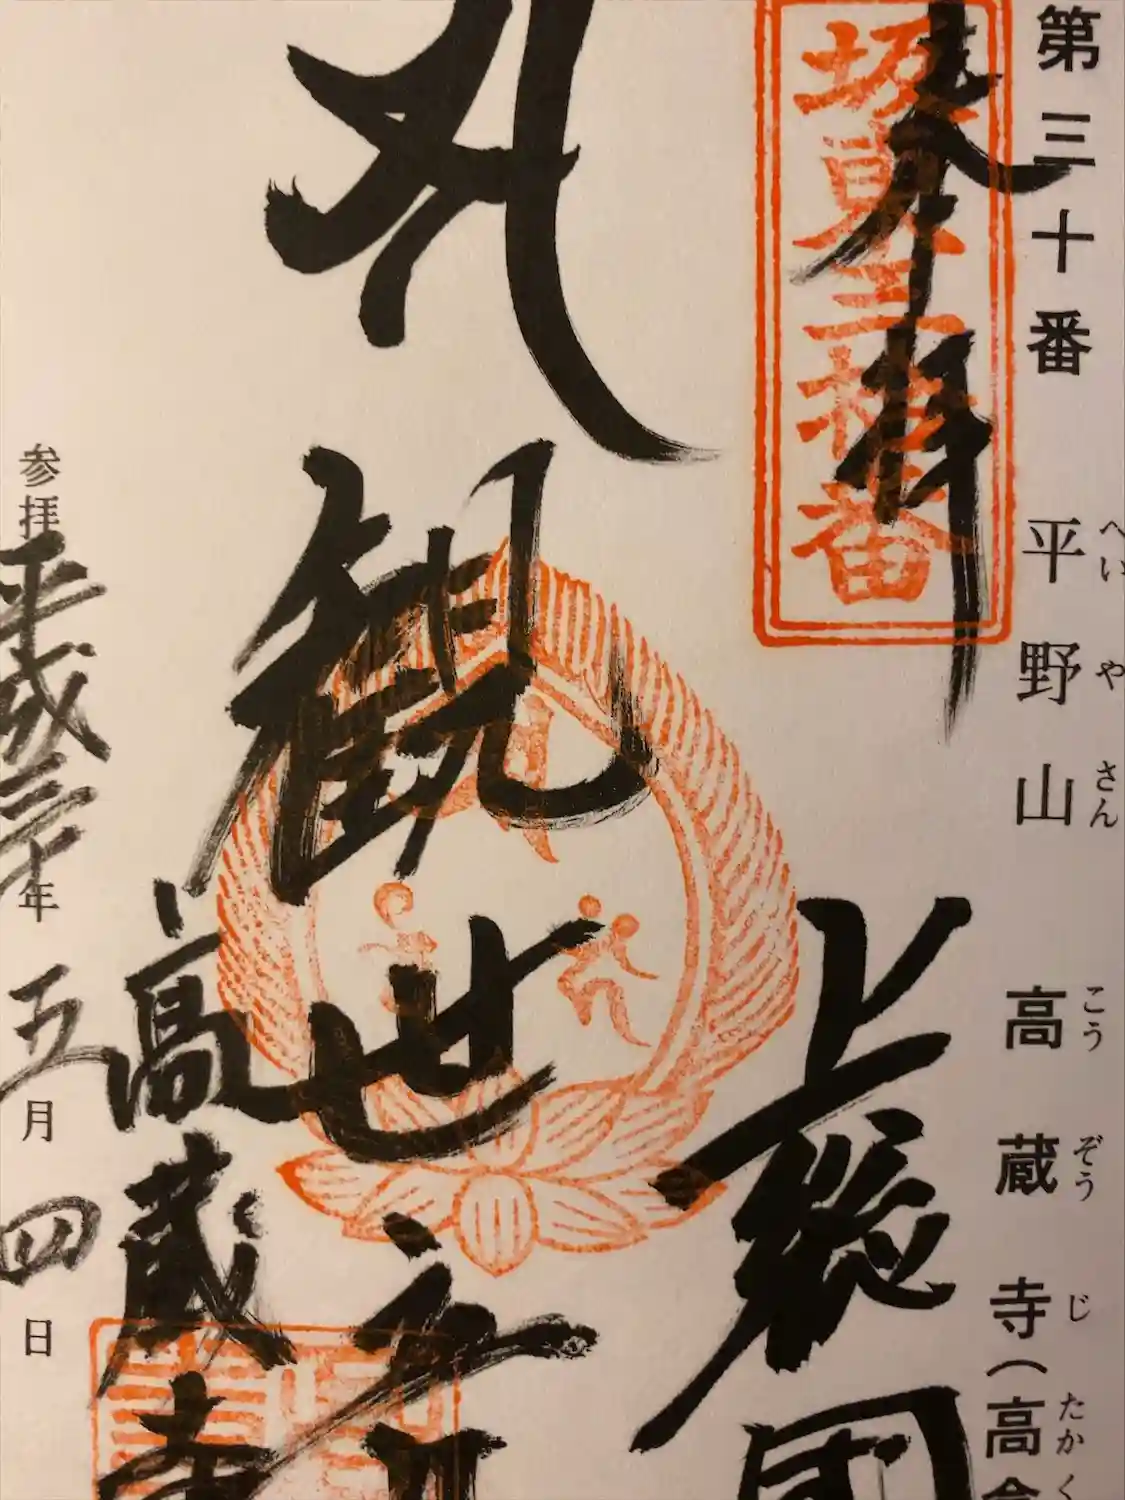 第三十番 平野山 高蔵寺(高倉
へいやさん こうぞうじ たかく
奉拝
坂東三十番
上総國
観世音
高蔵寺
参拝 平成三十年 五月 四日